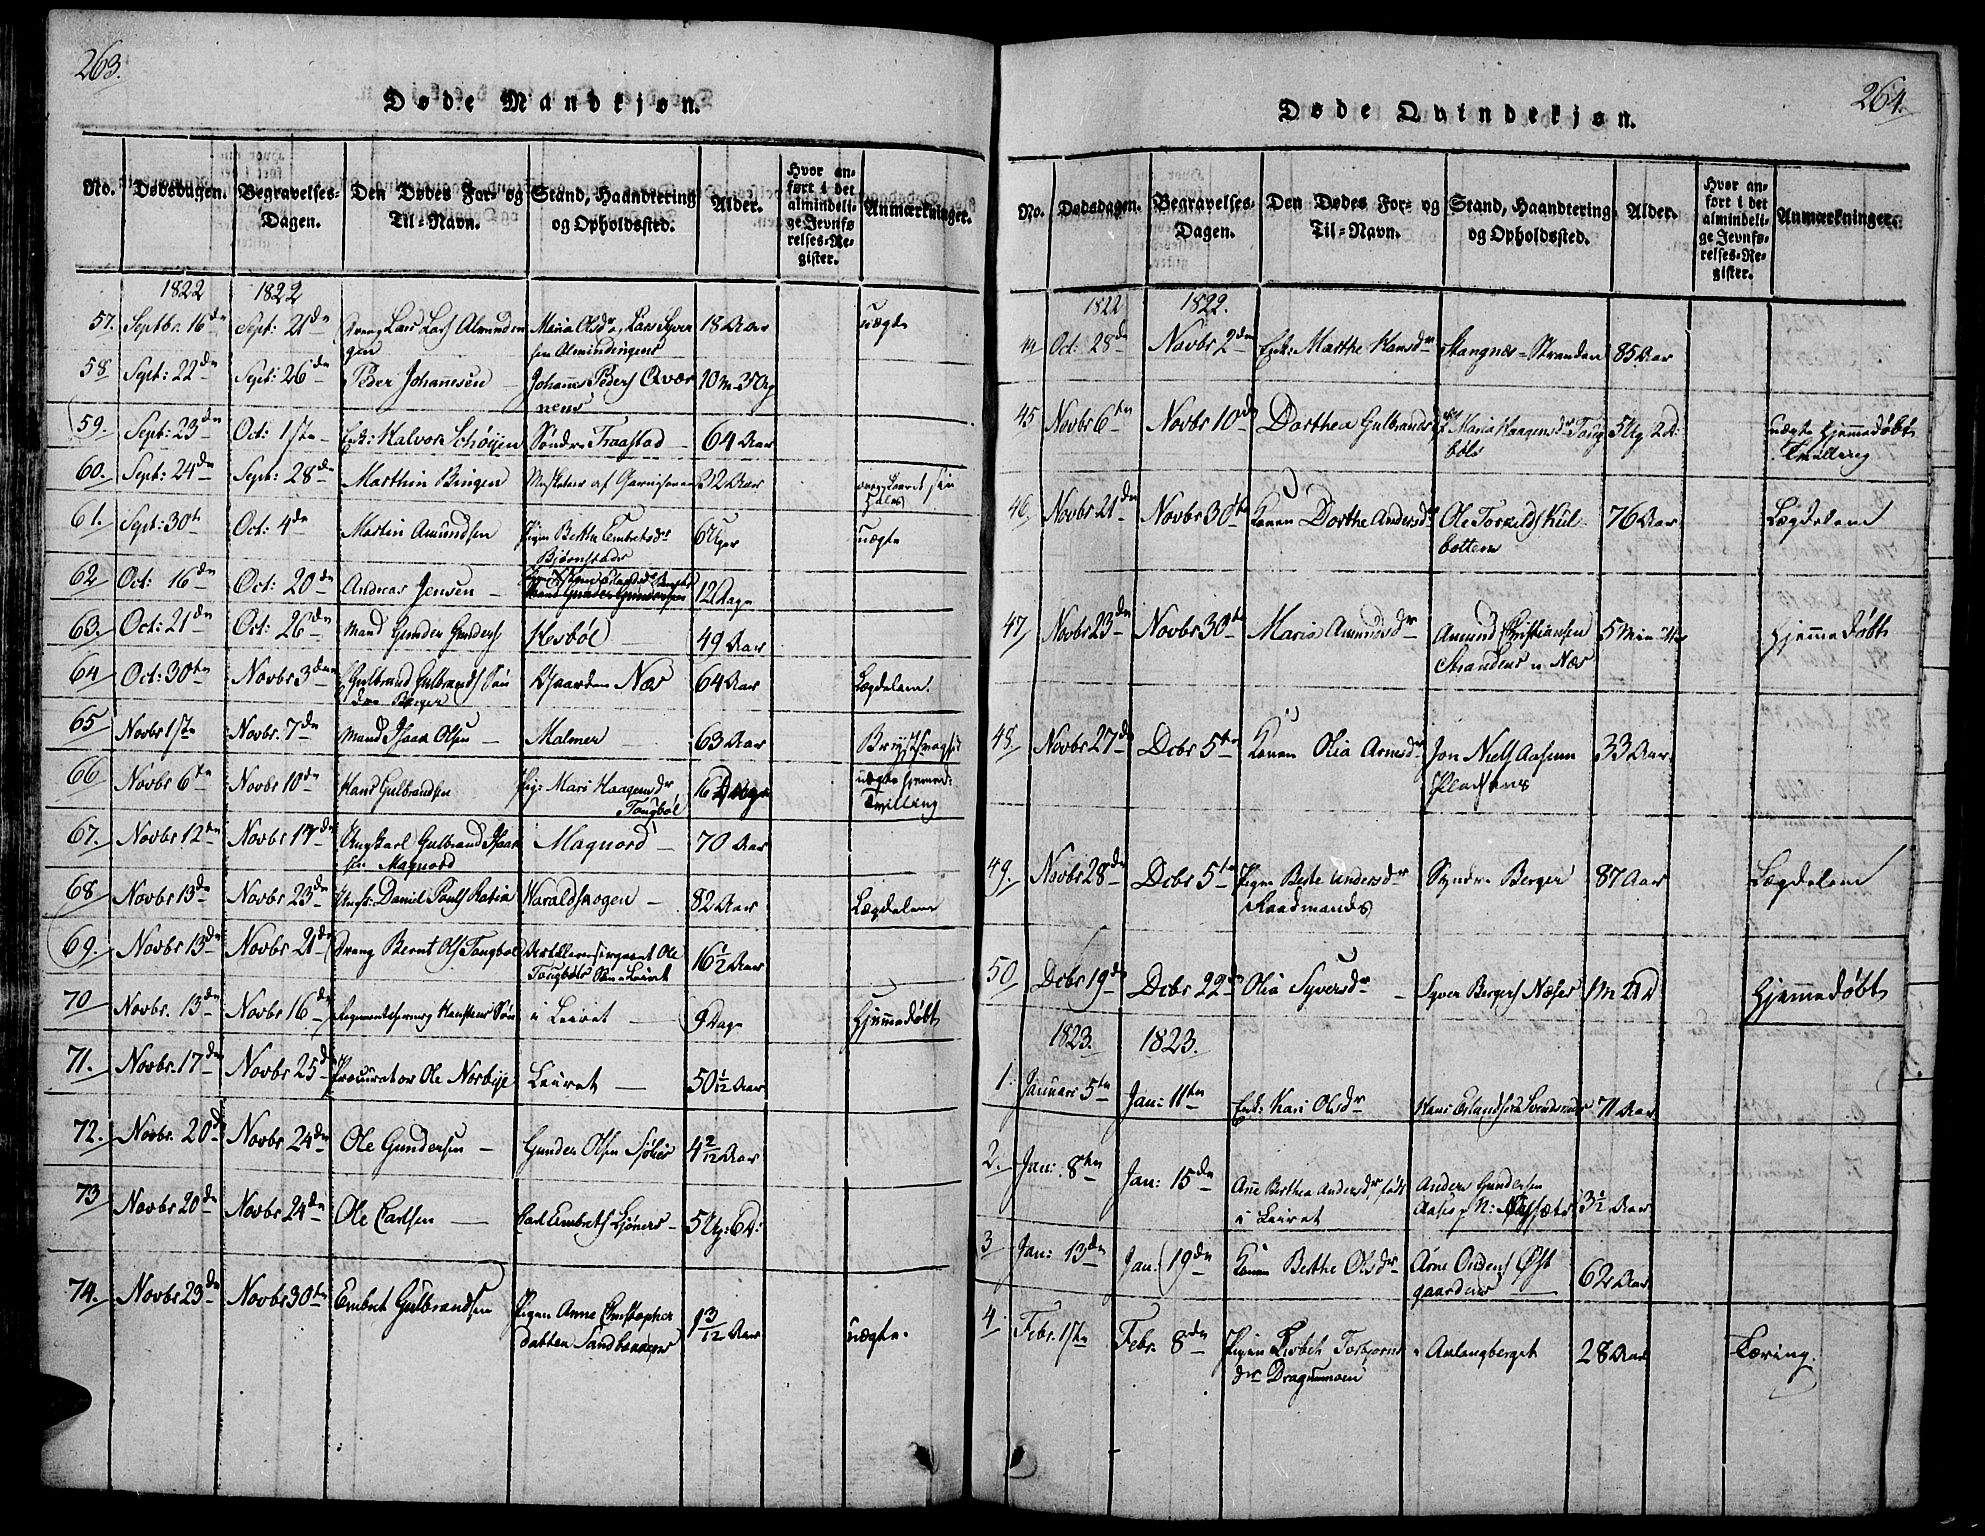 263.
Døde Mandkjøn.
No. Dødsdagen. Begravelses-Dagen. Den Dødes For- og Til-Navn. Stand, Haandtering og Opholdssted. Alder. Hvor anført i det almindelige Jevnførelses-Register. Anmærkninger.
1822 1822
57. Septbr. 16de Sept: 21de Lars Lars Almindingen Maria Olsdr, Lars Syversen Almindingens 18 Aar uægte
58 Sept: 22de Sept: 26de Peder Johannesen Johannes Peders Qværnens 10 M 3 Ug
59. Sept: 23de Oct: 1ste Enk: Halvor Schöyen Söndre Traastad 64 Aar
60. Sept: 24de Sept: 28de Marthin Bingen Musketeer af Garnisonen 32 Aar
61. Sept: 30te Oct: 4de Martin Amundsen Pigen Berthe Embretsdr Bjørnstads 6 Uger uægte
62 Oct: 16de Oct: 20de Andreas Jensen 12 Dage
63. Oct: 21de Oct: 26de Mand Gunder Gunders Kesböl 49 Aar
64 Oct: 30te Novbr 3die Gulbrand Gulbrands Sön Berger Gaarden Næs 64 Aar Lægdslem.
65 Novbr 1ste Novbr. 7de Mand Isaak Olsen Malmer 63 Aar Brystsvaghed
66 Novbr 6te Novbr 10de Hans Gulbrandsen Pig: Mari Haagensdr Tougböl 16 Dage uægte Tvilling
67. Novbr 12te Novbr 17de Ungkarl Gulbrand Isaaksen Magnord Magnord 70 Aar
68 Novbr 13de Novbr 23de Daniel Pouls Ratia Varaldskogen 82 Aar Lægdslem
69. Novbr 13de Novbr 21de Dreng Bernt Ols Tougböl Ole Tougböls Leiret 16 1/2 Aar
70 Novbr. 13de Novbr 16de Sön i Leiret 9 Dage Hjemmedöbt
71. Novbr. 17de Novbr 25de Procurator Ole Norbye Leiret 50 1/12 Aar
72. Novbr. 20de Novbr 24de Ole Gundersen Gunder Olsen Sjölie 4 2/12 Aar
73 Novbr 20de Novbr 24de Ole Carlsen Carl Embrets Lyöners 5 Ug: 6 D:
74. Novbr 23de Novbr 30te Embret Gulbrandsen Pigen Anne Christophersdatter Sandbakkens 1 3/12 Aar uægte.
264.
Døde Qvindekjøn.
No. Dødsdagen. Begravelses-Dagen. Den Dødes For- og Til-Navn. Stand, Haandtering og Opholdssted. Alder. Hvor anført i det almindelige Jevnførelses-Register. Anmærkninger.
1822 1822.
44 Oct: 28de Novbr 2den Enk: Marthe Hansdr Skangnæs-Stranden 85 Aar
45 Novbr 6te Novbr 10de Dorthea Gulbrandsd Maria Haagensdr Tougböls 5 Ug 2 D: uægte Hjemmedöbt Tvilling
46 Novbr 21de Novbr 30te Konen Dorthe Andersdr Ole Torkelds Kulbotten 76 Aar Lægdslem
47 Novbr 23de Novbr 30te Maria Amundsdr Amund Christiansen Strandens u. Næs 5 Min Hjemmedöbt
48 Novbr 27de Dcbr 5te Konen Olia Arnesdr Jon Niels Aasum Pladsens 33 Aar
49. Novbr 28de Dcbr 5te Pigen Berte Andersdr Raadmands Syndre Berger 87 Aar Lægdslem
50 Dcbr 19de Dcbr 22de Olia Syversdr Syver Bergers Næset 1 M 21 D Hjemmedöbt
1823. 1823.
1. Januari 5te Jan: 11te Enk: Kari Olsdr Hans Erlandsens 71 Aar
2. Jan: 8de Jan: 15de Ane Berthea Andersdr född i Leiret Anders Gundersen 3 1/2 Aar
3 Jan: 13de Jan: 19de Konen Berthe Olsdr Arne Ostgaardens 62 Aar
4. Febr. 1ste Febr. 8de Pigen Lisbeth Torbjørnsdr Dragumoen Aulangberget 28 Aar Tæring.